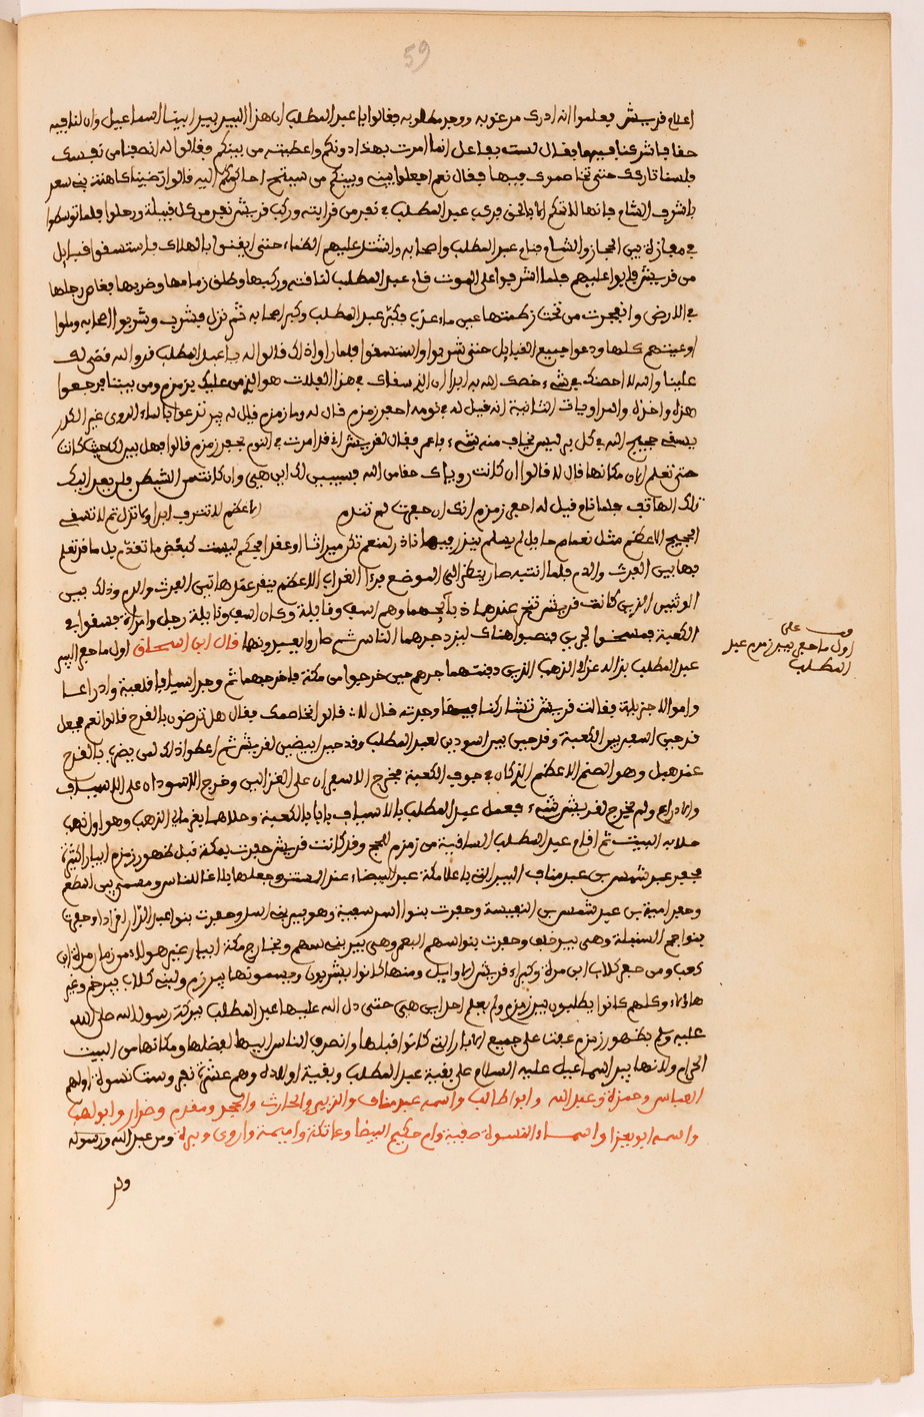 59
اعلام قريش فعلموا انه ادرك مرغوبه ووجد مطلوبه فقالوا يا عبد المطلب ان هذا البير بير ابينا اسماعيل وان لنا فيه
حقا فاشركنا فيها فقال لست بفاعل انما امرت بهذا دونكم واعطيته من بينكم فقالوا له انصفنا من نفسك
فلسنا تاركك حتى نخاصمك فيها فقال نعم اجعلوا بيني وبينكم من شيتم احاكمكم اليه فالوا رضينا كاهنة بني سعد
باشرف الشام فانها لا تحكم الا بالحق فركب عبد المطلب في نفر من قرابته وركب قريش نفر من كل قبيلة ورحلوا فلما توسطوا
في مفازة بين الحجاز والشام فناء عبد المطلب واصحابه واشتد عليهم الظماء حتى ايقنوا بالهلاك فاستسقوا قبايل
من قريش فابوا عليهم فلما اشرفوا على الموت قام عبد المطلب لناقته وركبها وطلق زمامها وضربها فغاص رجلها
في الارض وانفجرت من تحت عين ماء عذب فكبر عبد المطلب وكبر اصحابه ثم نزل فشرب وشربوا اصحابه وملوا
اوعيتهم كلها ودعوا جميع القبايل حتى شربوا واستسقوا فلما راوا ذلك قالوا له يا عبد المطلب قد والله قضى لك
علينا والله لا نخاصمك في شيء خصك الله به ابدا ان الذي سقاك في هذا الفلات هو الذي من عليك بزمزم ومن بيننا فرجعوا
هذه واحدة والروايات الثانية انه قيل له في نومه احفر زمزم قال له وما زمزم فقيل له بير تنزع بالماء الروي غير الكدر
يسقي حجيج الله في كل بر ليس يخاف منه شيء ما عمر فقال لقريش اني قد امرت في النوم بحفر زمزم قالوا فهل بين لك حيث كانت
حتى نعلم اين مكانها قال لا قالوا ان كانت روياك حقا من الله فسيبين لك اي هي وان كانت من الشيطن فلن يعد اليك
ذلك الهاتف فلما نام قيل له احفر زمزم انك ان حفرت لم تندم
الاعظم لا تنزف ابدا ولا تزل ثم لا تسف
الحجيج الاعظم مثل نعام حابل لم يقسم ينذر فيها ناذر لمنعم تكن ميراثا او عقدا محكم ليست كبعض ما تقدم بل ما قد تعلم
بها بين الفرث والدم فلما انتبه صار ينظر الى الموضع فراى الغراب الاعظم ينقر عند ها بين الفرث والدم وذلك بين
الوثنين الذين كانت قريش تنحر عندهما ذبايحهما وهم اساف ونايلة وكان اساف ونايلة رجل وامراة ففسقوا في
الكعبة فمسخوا حجرين فنصبوا هناك لينزجر بهما الناس ثم صاروا يعبدونها قال ابن اسحاق اول ما حفر البير
عبد المطلب بدا له غزالا الذهب الذين دفنتهما جرهم حين خرجوا من مكة فاخرجهما ثم وجد اسيافا قلعية وادراعا
واموالا جزيلة فقالت قريش نشاركنا فيما وجدته قال لا قالوا نخاصمك فقال هل ترضون بالقرح قالوا نعم فجعل
قدحين اصفرين للكعبة وقدحين اسودين لعبد المطلب وقدحين ابيضين لقريش ثم اعطوا ذلك لمن يضرب بالقدح
عند هبل وهو الصنم الاعظم الذي كان في جوف الكعبة فخرج الاصفران على الغزالين وخرج الاسودان على الاسياف
والادراع ولم يخرج لقريش شيء فعمل عبد المطلب بالاسياف بابا بالكعبة وحلاهما بغزالي الذهب وهو اول ذهب
حلا به البيت ثم اقام عبد المطلب الساقية من زمزم للحج وقد كانت قريش حفرت بمكة قبل ظهور زمزم ابيارا كثيرة
فحفر عبد شمس بن عبد مناف البير التي باعلا مكة عند البيضاء
وحفر امية بن عبد شمس
بنوا جمح السنبلة وهي بير خلف وحفرت بنوا سهم الغمر وهي بير بني سهم وبخارج مكة ابيار غير هولاء من زمان مرة بن
كعب ومن حفر كلاب ابن مرة وكبراء قريش الاوايل ومنها كانوا يشربون
هاؤلاء وكلهم كانوا يطلبون بير زمزم ولم يعلم احد اين هي حتى دل الله عليها عبد المطلب ببركة رسول الله صلى الله
عليه وسلم بظهور زمزم عفت على جميع الابيار التي كانوا قبلها وانصرف الناس اليها لفضلها ومكانها من البيت
الحرام ولانها بير اسماعيل عليه السلام على بقية عبد المطلب وبقية اولاده وهم عشرة نفر وست نسوة اولهم
العباس وحمزة وعبد الله وابو طالب واسمه عبد مناف والزبير والحارث والحجل ومقدم وضرار وابو لهب
واسمه ابو يعزا واسماء النسوة صفية وام حكيم البيضا وعاتكة واميمة واروى وبرة ومن عبد الله ورسوله
قف على
اول ما حفر بير زمزم عبد
المطلب